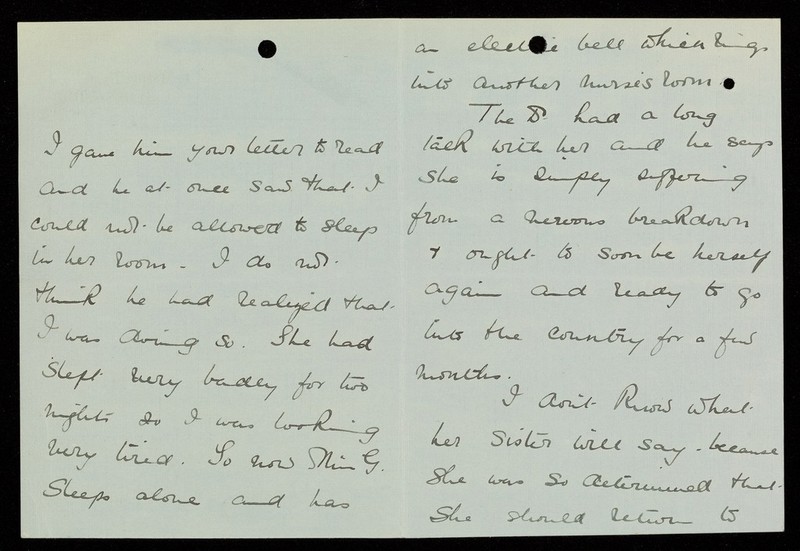 I gave him your letter to read
and he at once said that I
could not be allowed to sleep
in her room - I do not
think he had realized that
I was doing so. She had
slept very badly for two
nights so I was looking
very tired. So now Miss G.
sleeps alone and has
an electric bell which rings
into another nurse's room.
The Dr had a long
talk with her and he says
she is simply suffering
from a nervous breakdown
& ought to soon be herself
again and ready to go
into the country for a few
months.
I don't know what
her sister will say - because
she was so determined that
she should return to